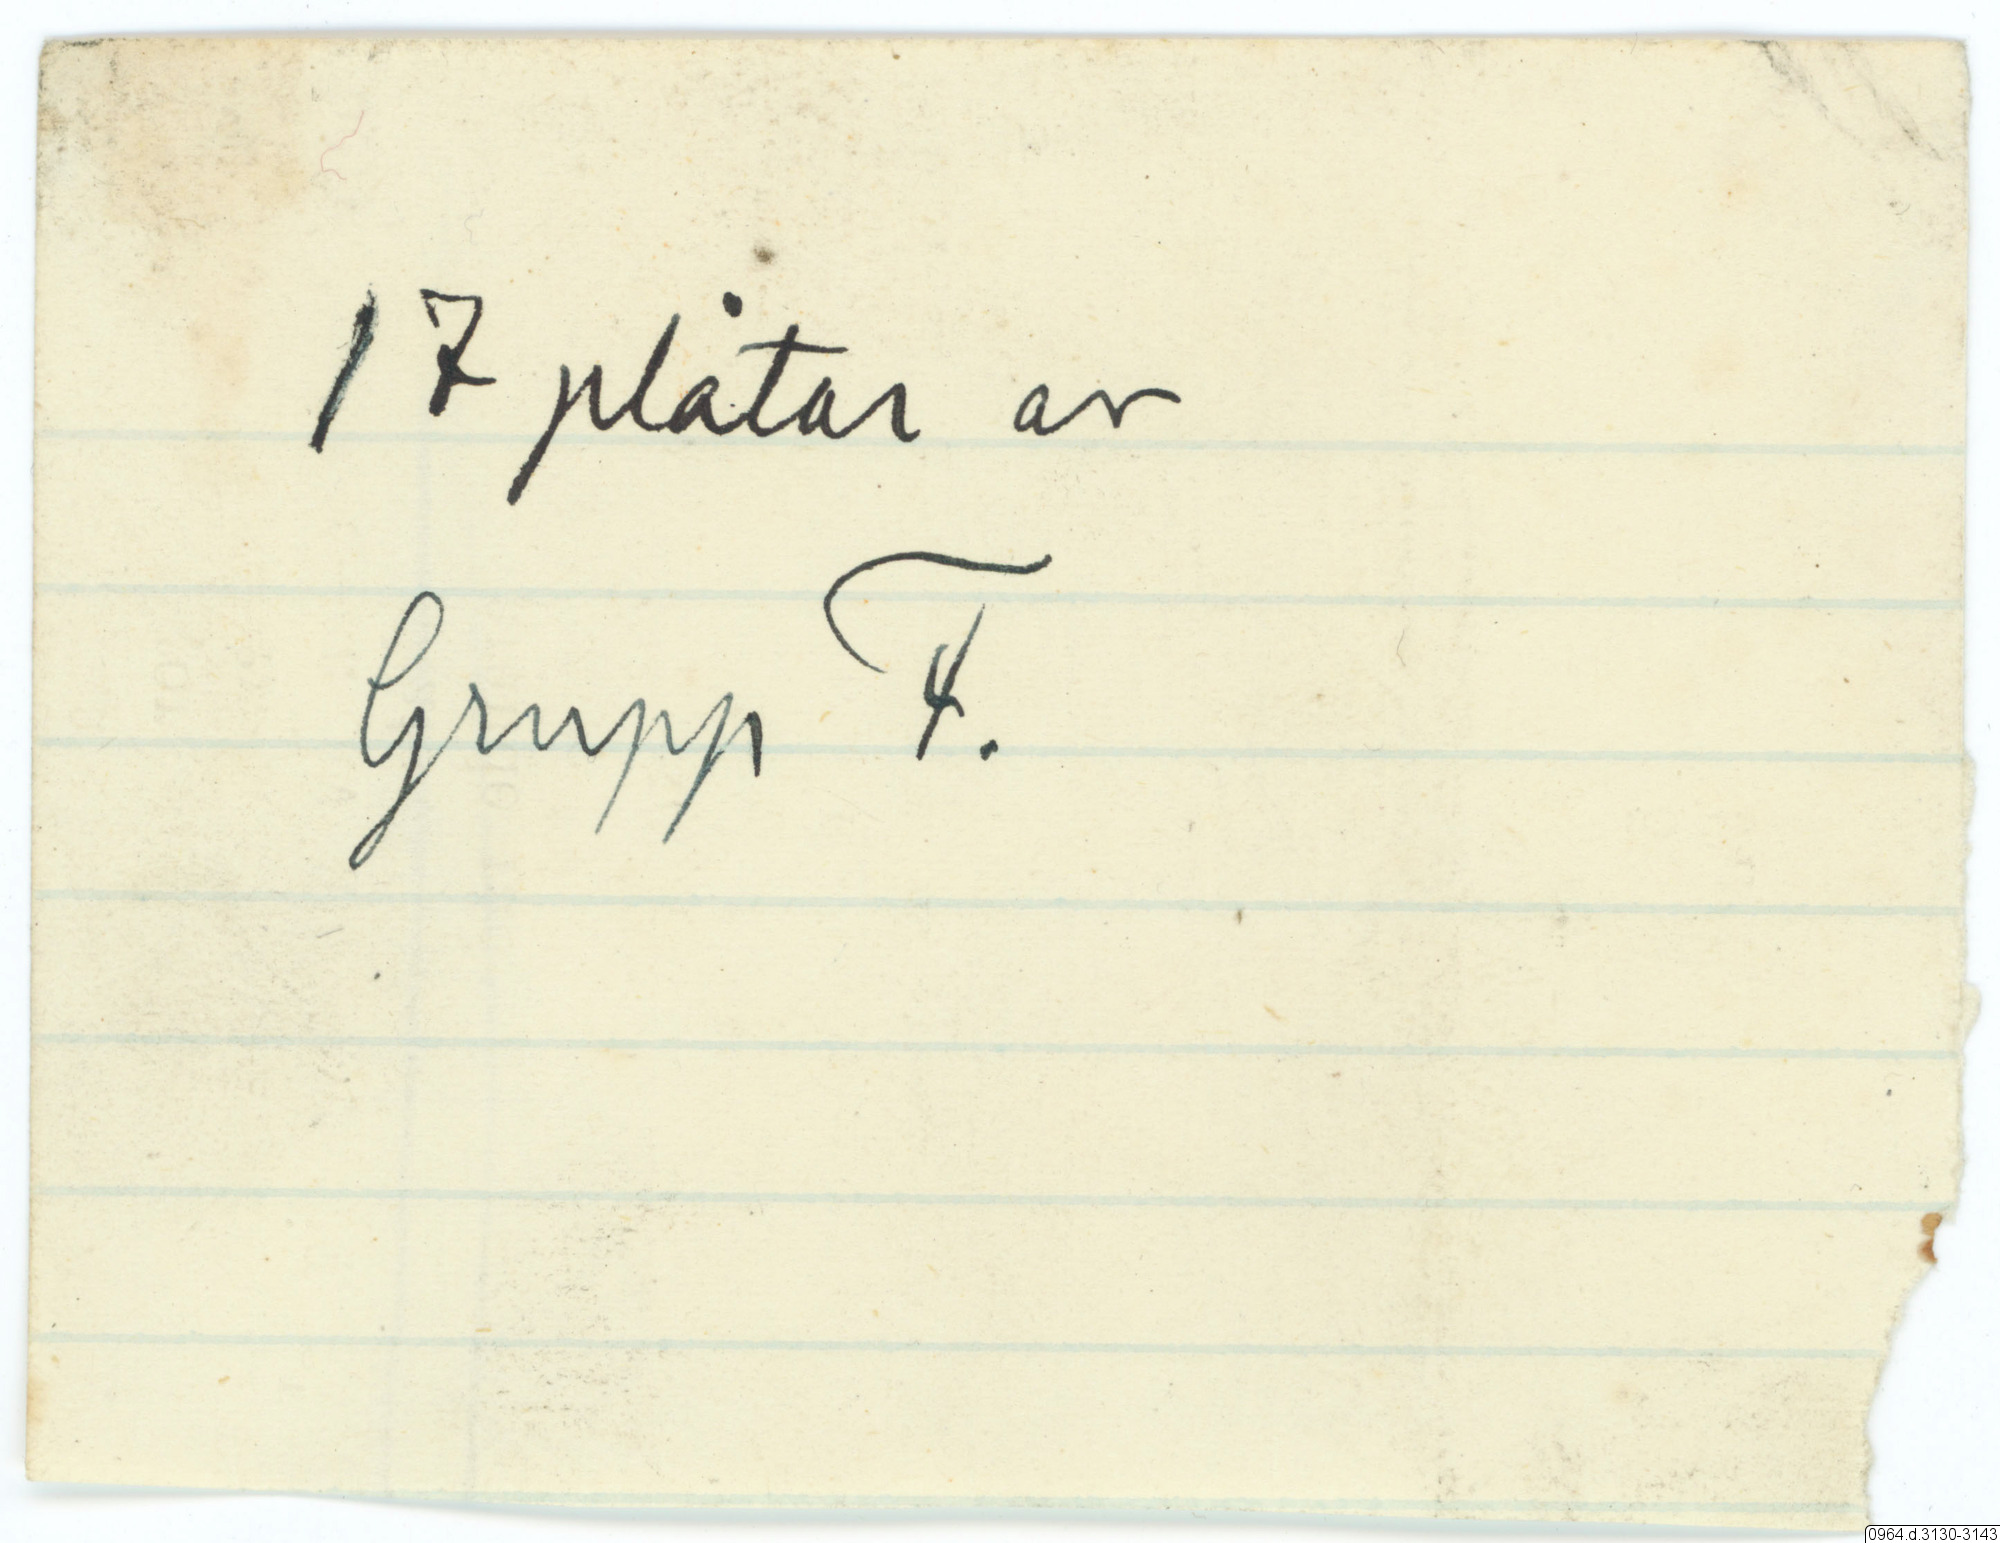 17 plåtar av
Grupp F.
0964.d.3130-3143